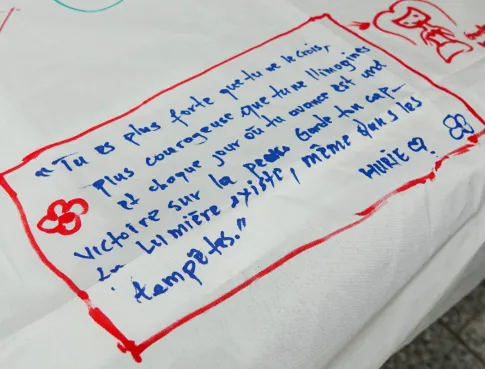 « Tu es plus forte que tu ne le crois,
Plus courageuse que tu ne l'imagines
et chaque jour où tu avance est une
victoire sur la peur. Garde ton cap-
La lumière existe, même dans les
tempêtes."
MURIE